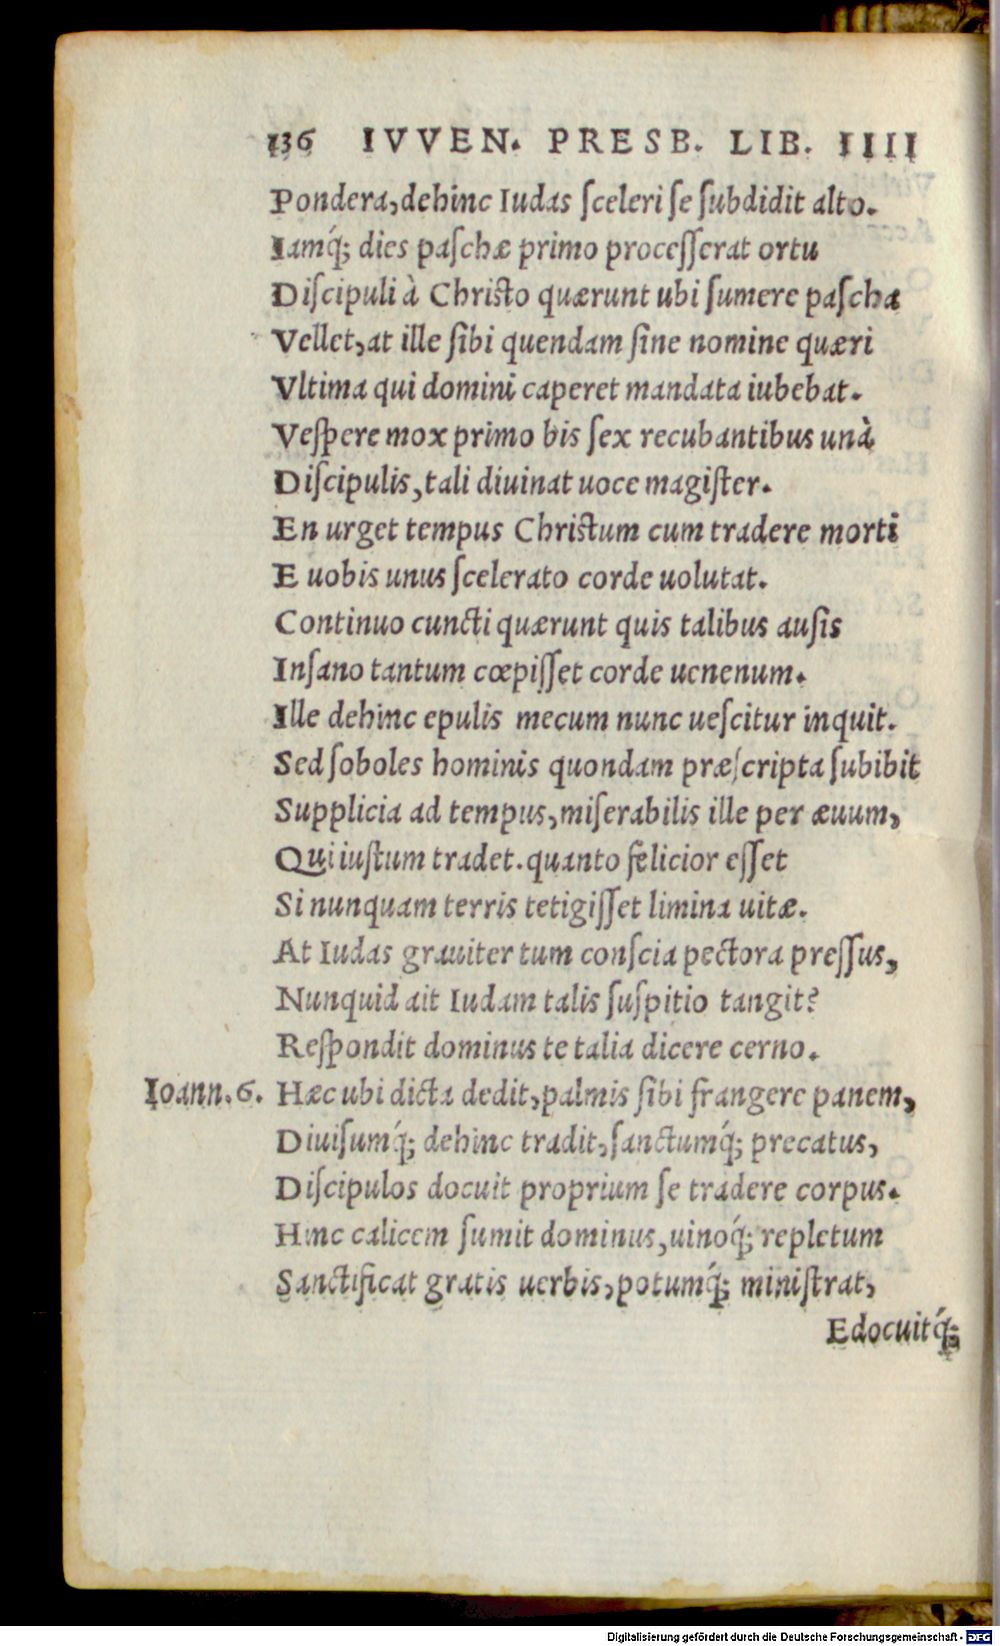 136 IVVEN. PRESB. LIB. IIII
Pondera, dehinc Iudas sceleri se subdidit alto.
Iamq́; dies paschæ primo processerat ortu
Discipuli à Christo quærunt ubi sumere pascha
Vellet, at ille sibi quendam sine nomine quæri
Vltima qui domini caperet mandata iubebat.
Vespere mox primo bis sex recubantibus unà
Discipulis, tali diuinat uoce magister.
En urget tempus Christum cum tradere morti
E uobis unus scelerato corde uolutat.
Continuo cuncti quærunt quis talibus ausis
Insano tantum cœpisset corde uenenum.
Ille dehinc epulis mecum nunc uescitur inquit.
Sed soboles hominis quondam præscripta subibit
Supplicia ad tempus, miserabilis ille per æuum,
Qui iustum tradet. quanto felicior esset
Si nunquam terris tetigisset limina uitæ.
At Iudas grauiter tum conscia pectora pressus,
Nunquid ait Iudam talis suspitio tangit?
Respondit dominus te talia dicere cerno.
Ioann. 6. Hæc ubi dicta dedit, palmis sibi frangere panem,
Diuisumq́; dehinc tradit, sanctumq́; precatus,
Discipulos docuit proprium se tradere corpus.
Hinc calicem sumit dominus, uinoq́; repletum
Sanctificat gratis uerbis, potumq́; ministrat,
Edocuitq́;
Digitalisierung gefördert durch die Deutsche Forschungsgemeinschaft - DFG